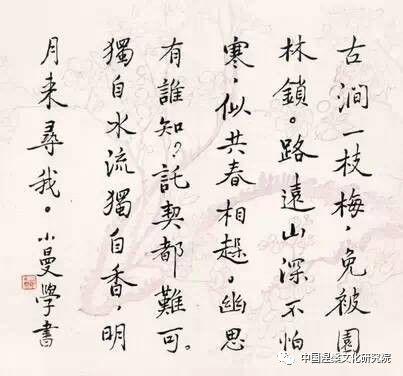 古澗一枝梅，免被園
林鎖。路遠山深不怕
寒，似共春相趓。幽思
有誰知？託契都難可。
獨自水流獨自香，明
月来尋我。小曼學書
中国涅槃文化研究院